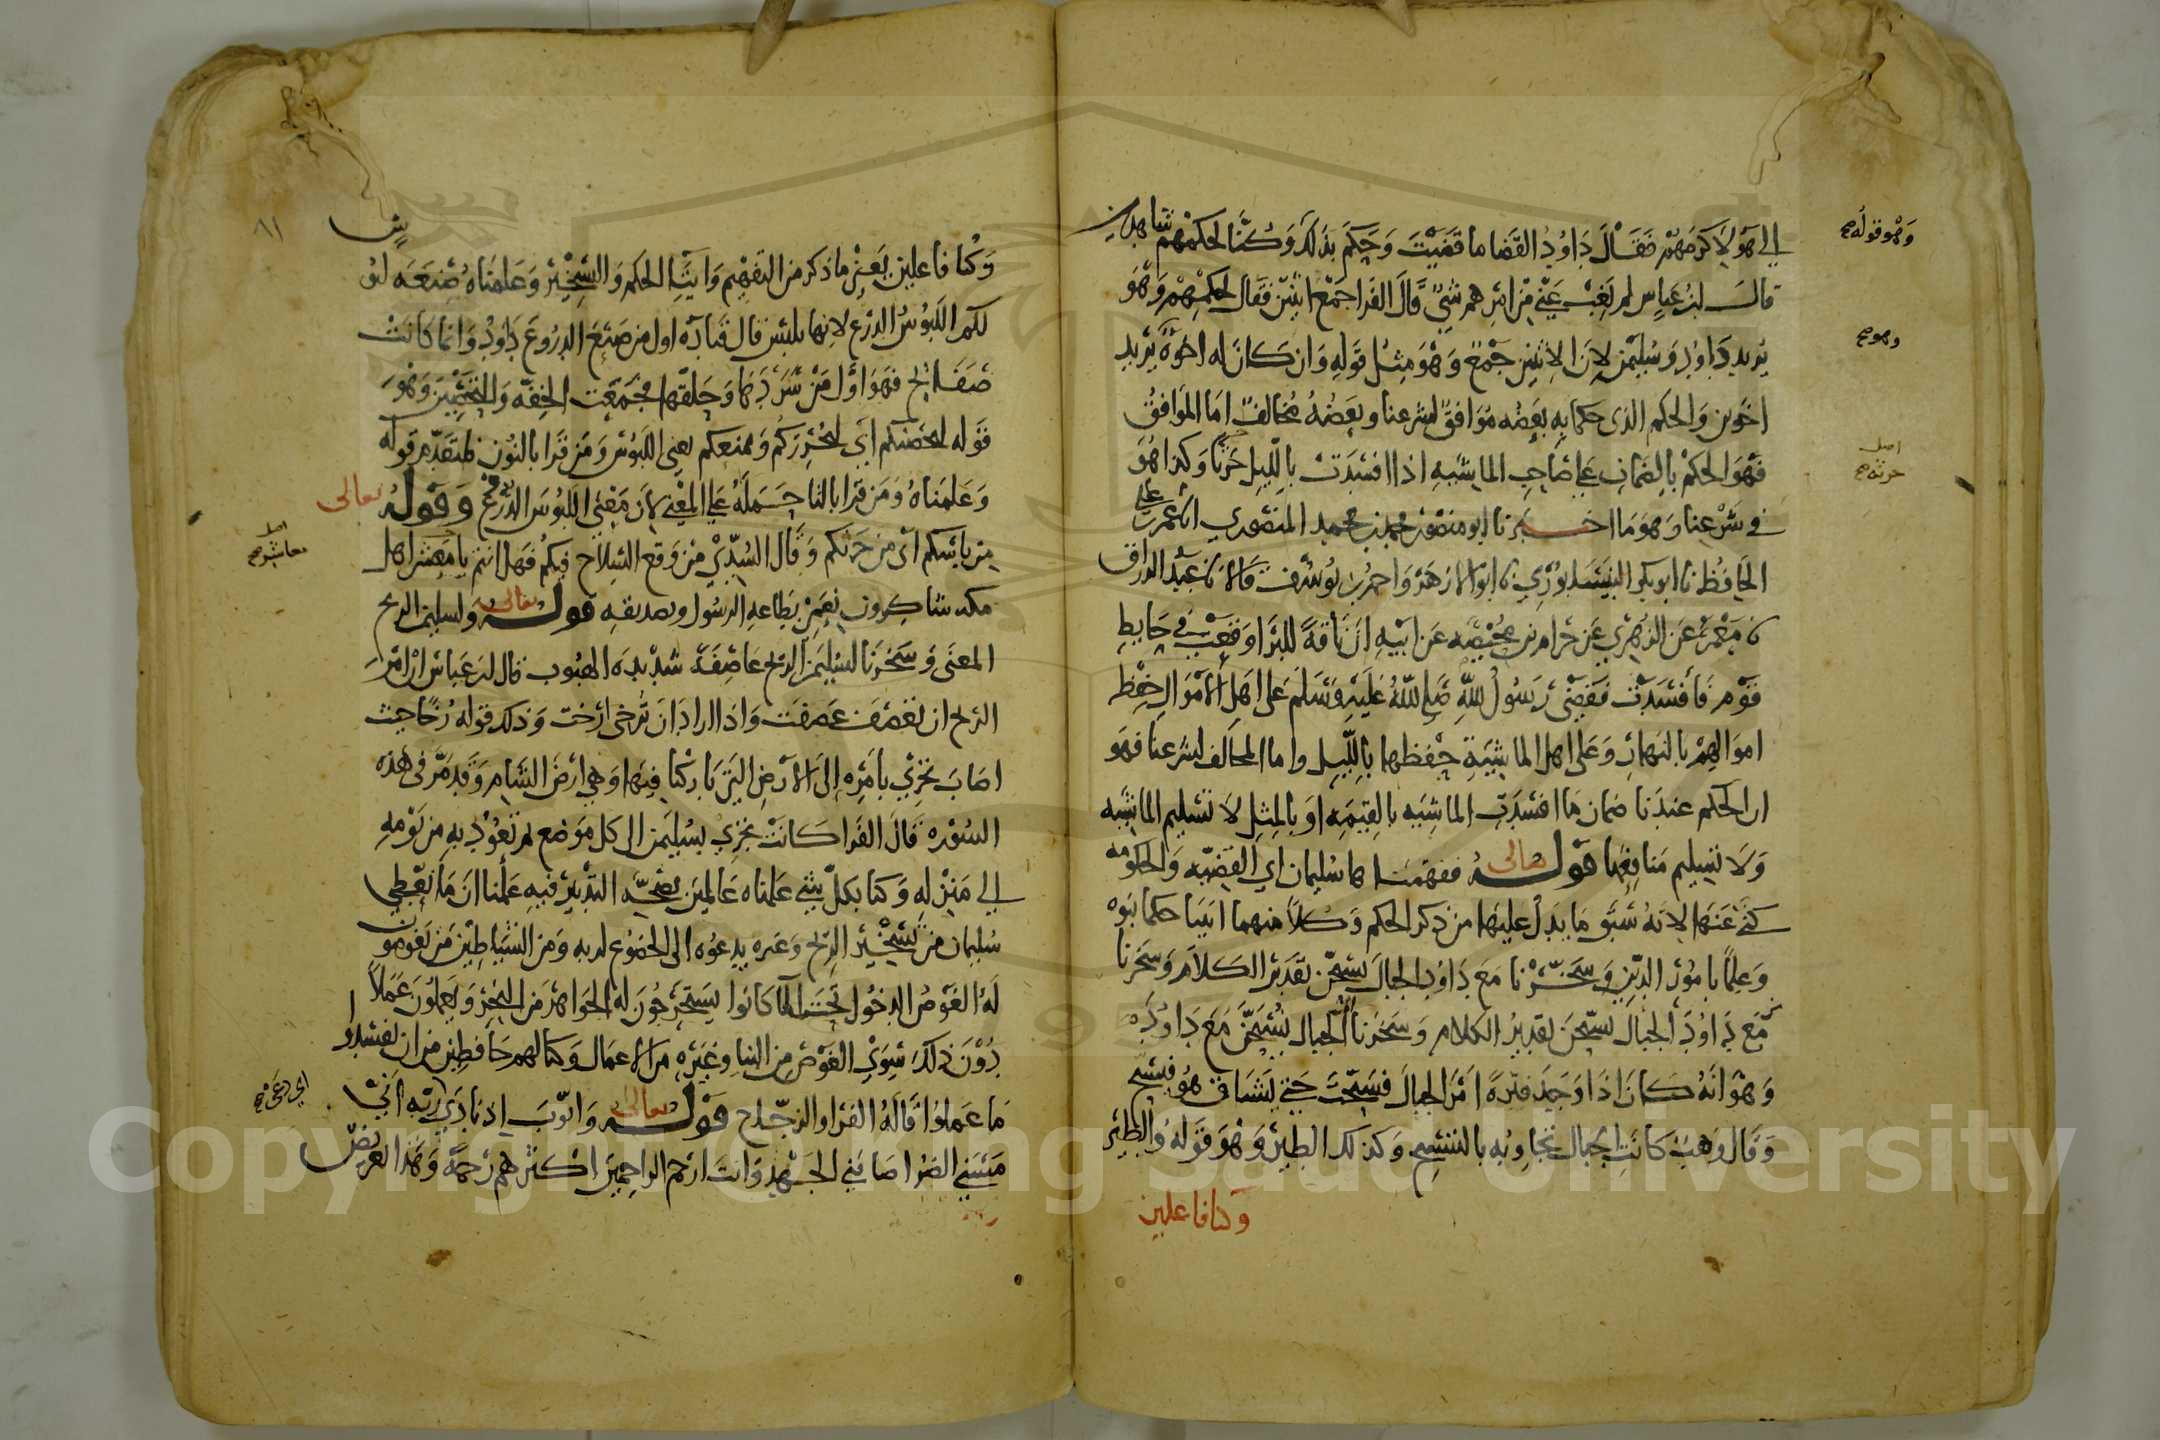 الي هولا كرمهم فقال داود القضا ما قضيت وحكم بذلك وكنا لحكمهم شاهدين
وهو قوله صح
قال ابن عباس لم يغب عني من امرهم شي قال الفرا جمع اثنين فقال لحكمهم وهو
يريد داود وسليمن لان الاثنين جمع وهو مثل قوله وان كان له اخوة يريد
وهو صح
اخوين والحكم الذي حكما به بعضه موافق لشرعنا وبعضه مخالف اما الموافق
فهو الحكم بالضمان علي صاحب الماشيه اذا افسدت بالليل حرثا وكذا هو
اصل
حرثه صح
في شرعنا وهو ما اخبرنا ابو منصور محمد بن محمد المنصوري انا علي بن عمر
الحافظ نا ابو بكر النيسابوري نا ابو الازهر واحمد بن يوسف قالا نا عبد الرزاق
نا معمر عن الزهري عن حرام بن محيصه عن ابيه ان ناقة للبرا وقعت في حايط
قوم فافسدت فقضى رسول الله صلى الله عليه وسلم على اهل الاموال حفظ
اموالهم بالنهار وعلى اهل الماشية حفظها بالليل واما المخالف لشرعنا فهو
ان الحكم عندنا ضمان ما افسدت الماشيه بالقيمه او بالمثل لا تسليم الماشيه
ولا تسليم منافعها قوله تعالى ففهمناها سليمان اي القضيه والحكومه
كنى عنها لانه سبق ما يدل عليها من ذكر الحكم وكلا منهما اتينا حكما نبوه
وعلما بامور الدين وسخرنا مع داود الجبال يسبحن تقدير الكلام وسخرنا
مع داود الجبال يسبحن تقدير الكلام وسخرنا الجبال يسبحن مع داود
وهو انه كان اذا وجد فترة امر الجبال فسبحت حتى يشتاق هو فيسبح
وقال وهب كانت الجبال تجاوبه بالتسبيح وكذلك الطير وهو قوله والطير
وكنا فاعلين
٨١
وكنا فاعلين يعني ما ذكر من التفهيم وايتا الحكم والتسخير وعلمناه صنعه لبوس
لكم اللبوس الدرع لانها تلبس قال قتاده اول من صنع الدروع داود وانما كانت
صفايح فهو اول من سردها وحلقها فجمعت الخفه والتحصين وهو
قوله لتحصنكم اي لتحرزكم وتمنعكم يعني اللبوس ومن قرا بالنون فلتقدم قوله
وعلمناه ومن قرا بالتا حمله على المعنى لان معنى اللبوس الدرع وقوله تعالى
من باسكم اي من حربكم وقال السدي من وقع السلاح فيكم فهل انتم يا معشر اهل
اصل
معاشر صح
مكه شاكرون نعمي بطاعه الرسول وتصديقه قوله تعالى ولسليمن الريح
المعنى وسخرنا لسليمن الريح عاصفة شديده الهبوب قال ابن عباس ان امر
الريح ان تعصف عصفت واذا اراد ان ترخى ارخت وذلك قوله رخا حيث
اصاب تجري بامره الى الارض التي باركنا فيها وهي ارض الشام وقد مر في هذه
السوره قال الفرا كانت تجري بسليمن الى كل موضع لم تعود به من يومه
الي منزله وكنا بكل شي علمناه عالمين بصحه التدبير فيه علمنا ان ما نعطي
سليمان من تسخير الريح وغيره يدعوه الى الخضوع لربه ومن الشياطين من يغوصون
له الغوص الدخول تحت الما كانوا يستخرجون له الجواهر من البحر ويعملون عملا
دون ذلك سوى الغوص من البنا وغيره من الاعمال وكنا لهم حافظين من ان يفسدوا
ما عملوا قاله الفرا والزجاج قوله تعالى وايوب اذ نادى ربه اني
اي دعى صح
مسني الضر اصابني الجهد وانت ارحم الراحمين اكثرهم رحمة وهذا تعريض
Copyright © King Saud University